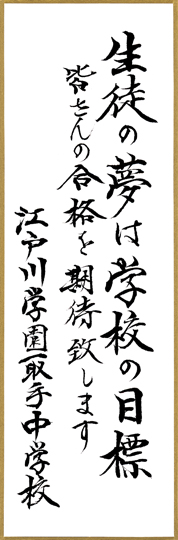 生徒の夢は学校の目標
皆さんの合格を期待致します
江戸川学園取手中学校